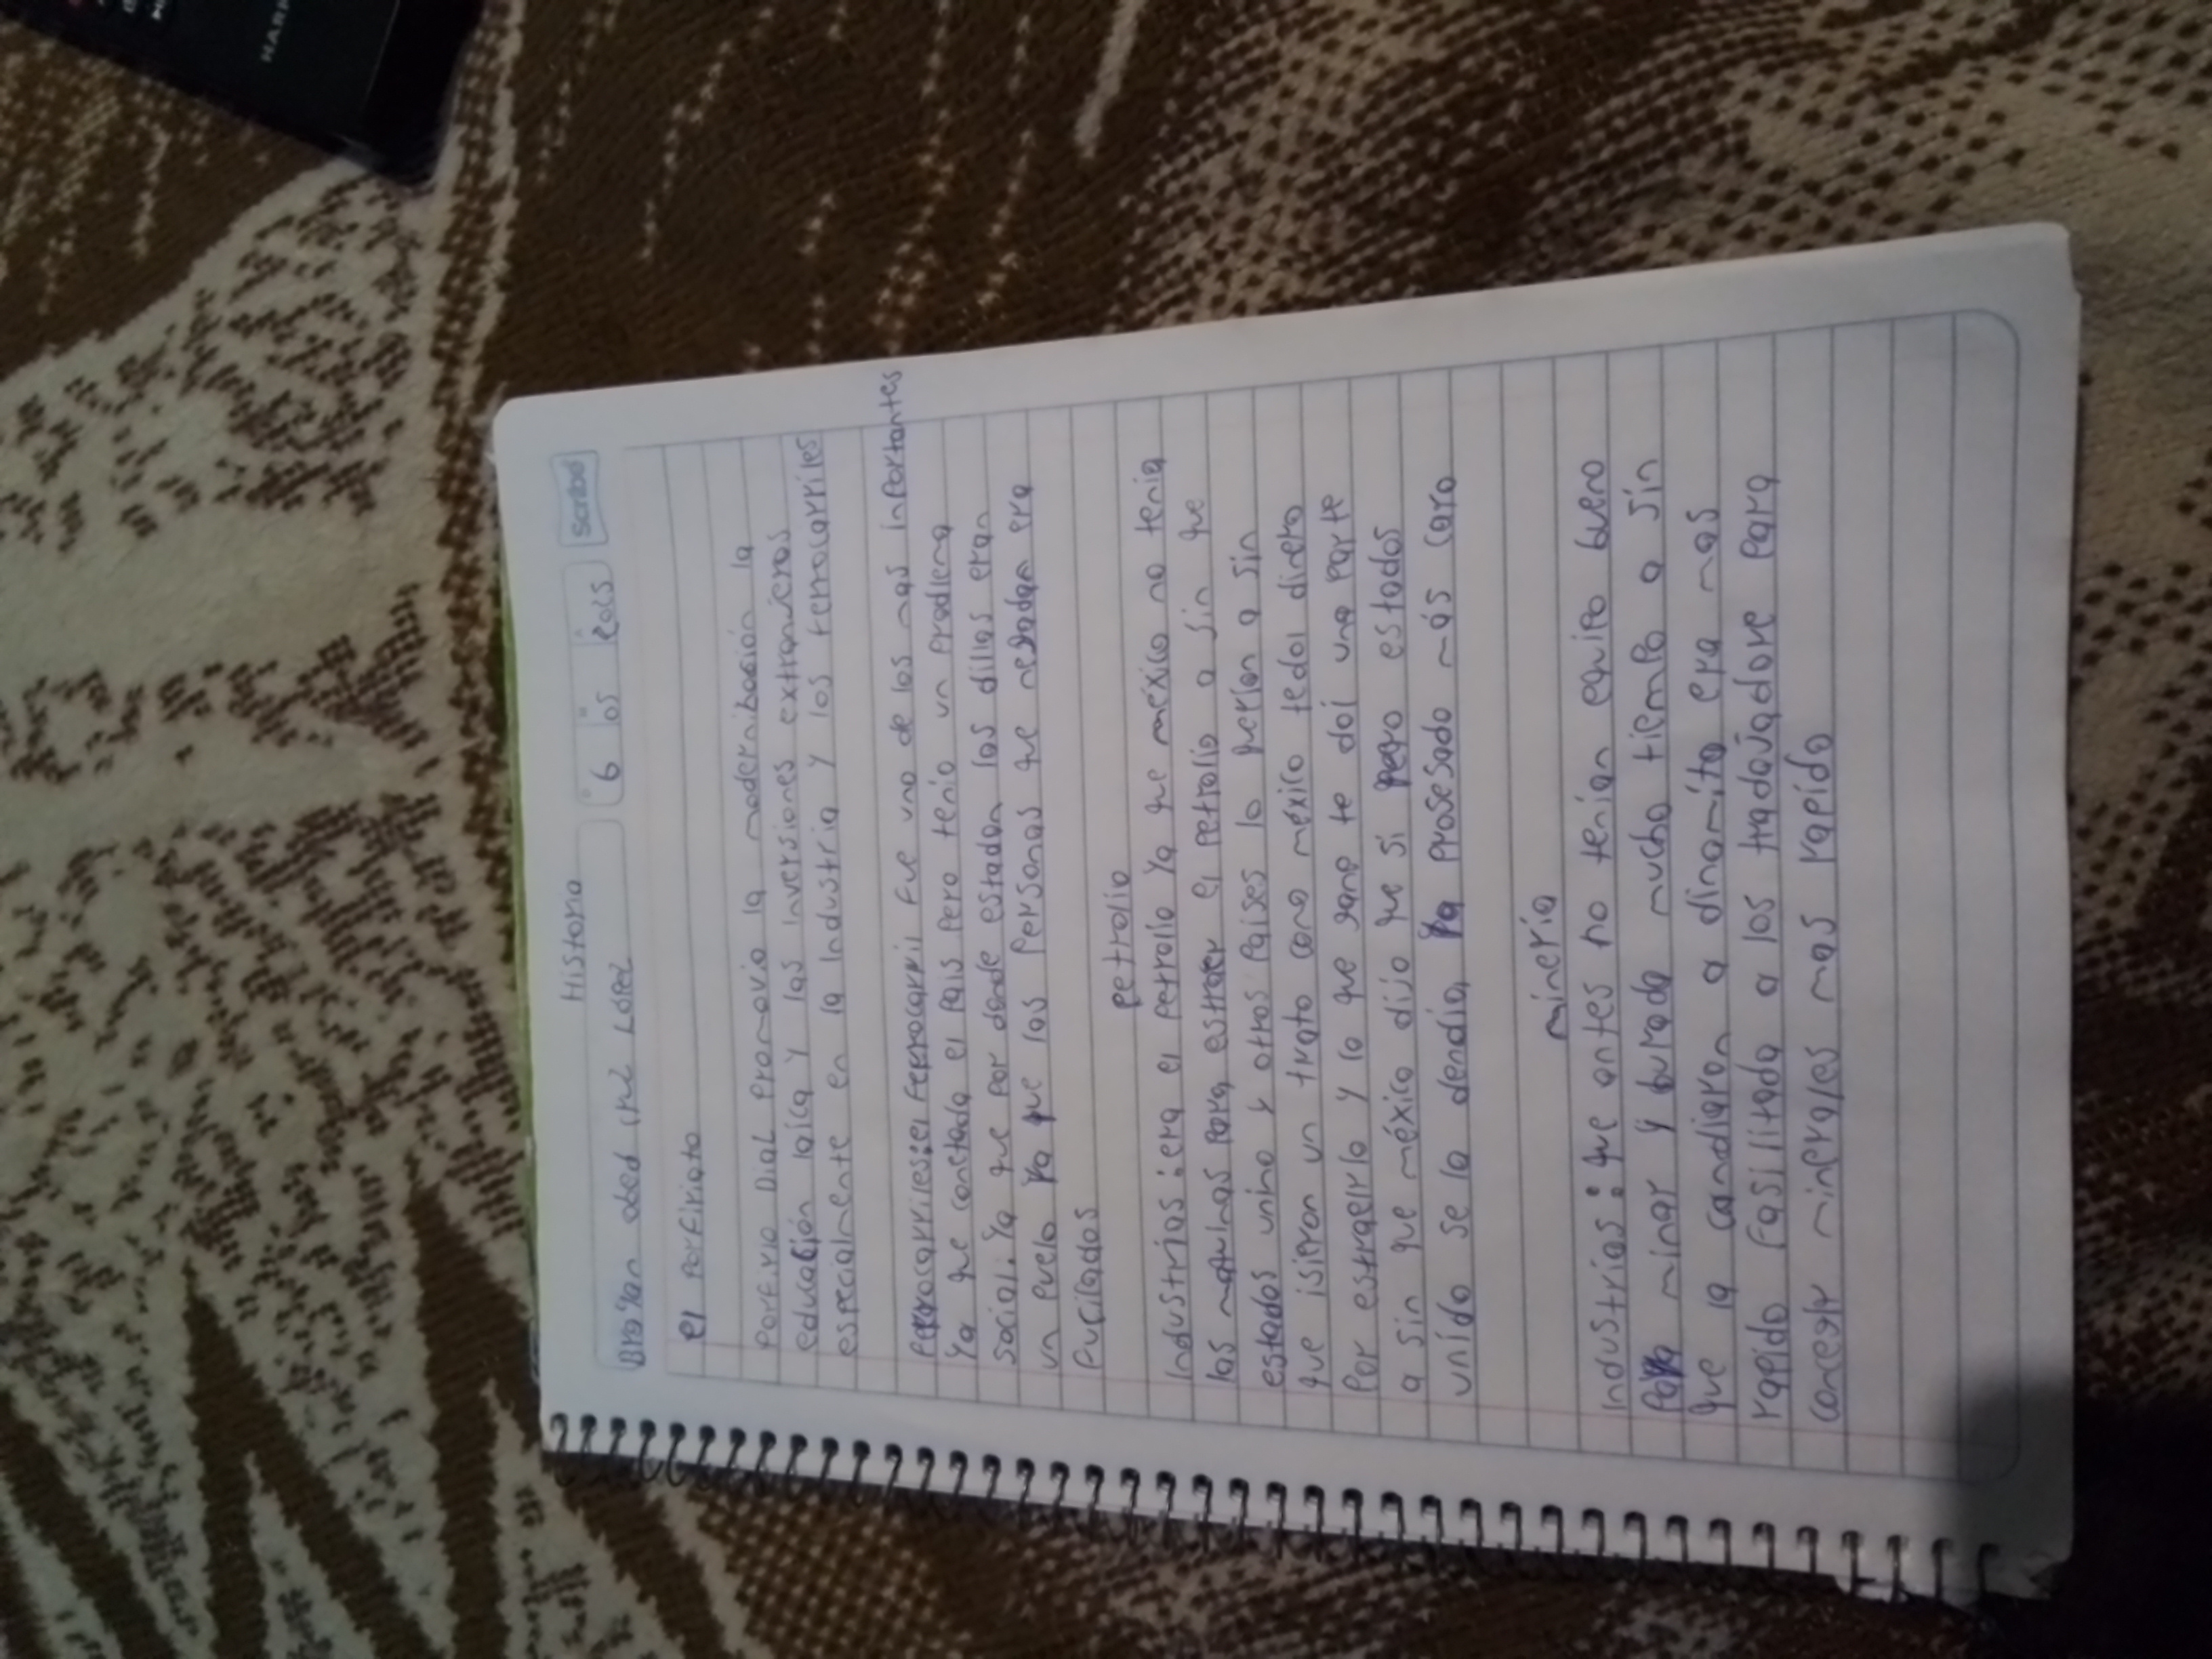 Historia
Brayan obed cruz López
6 05 2025
scribe
el Porfiriato
Porfirio Dial promovio la modernibación la
educabión laica y las inversiones extranjeras
especialmente en la industria y los ferrocarriles
Ferrocarriles: el Ferrocarril fue uno de los mas inportantes
ya que conectada el pais pero tenio un prodlema
social. ya que por donde estadan las dillas eran
un puelo ya que las personas que nesadan era
fucilados
petrolio
industrias: era el petrolio ya que méxico no tenia
las maquinas para estraer el petrolio a sin que
estados unino y otros paises lo querían a sin
que isieron un trato como méxico tedoi dinero
por estraerlo y lo que gane te doi una parte
a sin que méxico dijo que si pero estados
unido se lo dendía ya prosesado más caro
minería
industrias: que antes no tenían equipo bueno
para minar y durada mucho tiempo a sin
que la candiaron a dinamíta era mas
rapido fasilitada a los tradajadore para
concegir minerales mas rapido
HAR